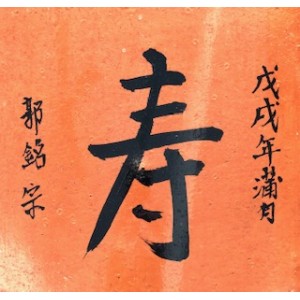 戊戌年蒲月
寿
郭銘宗